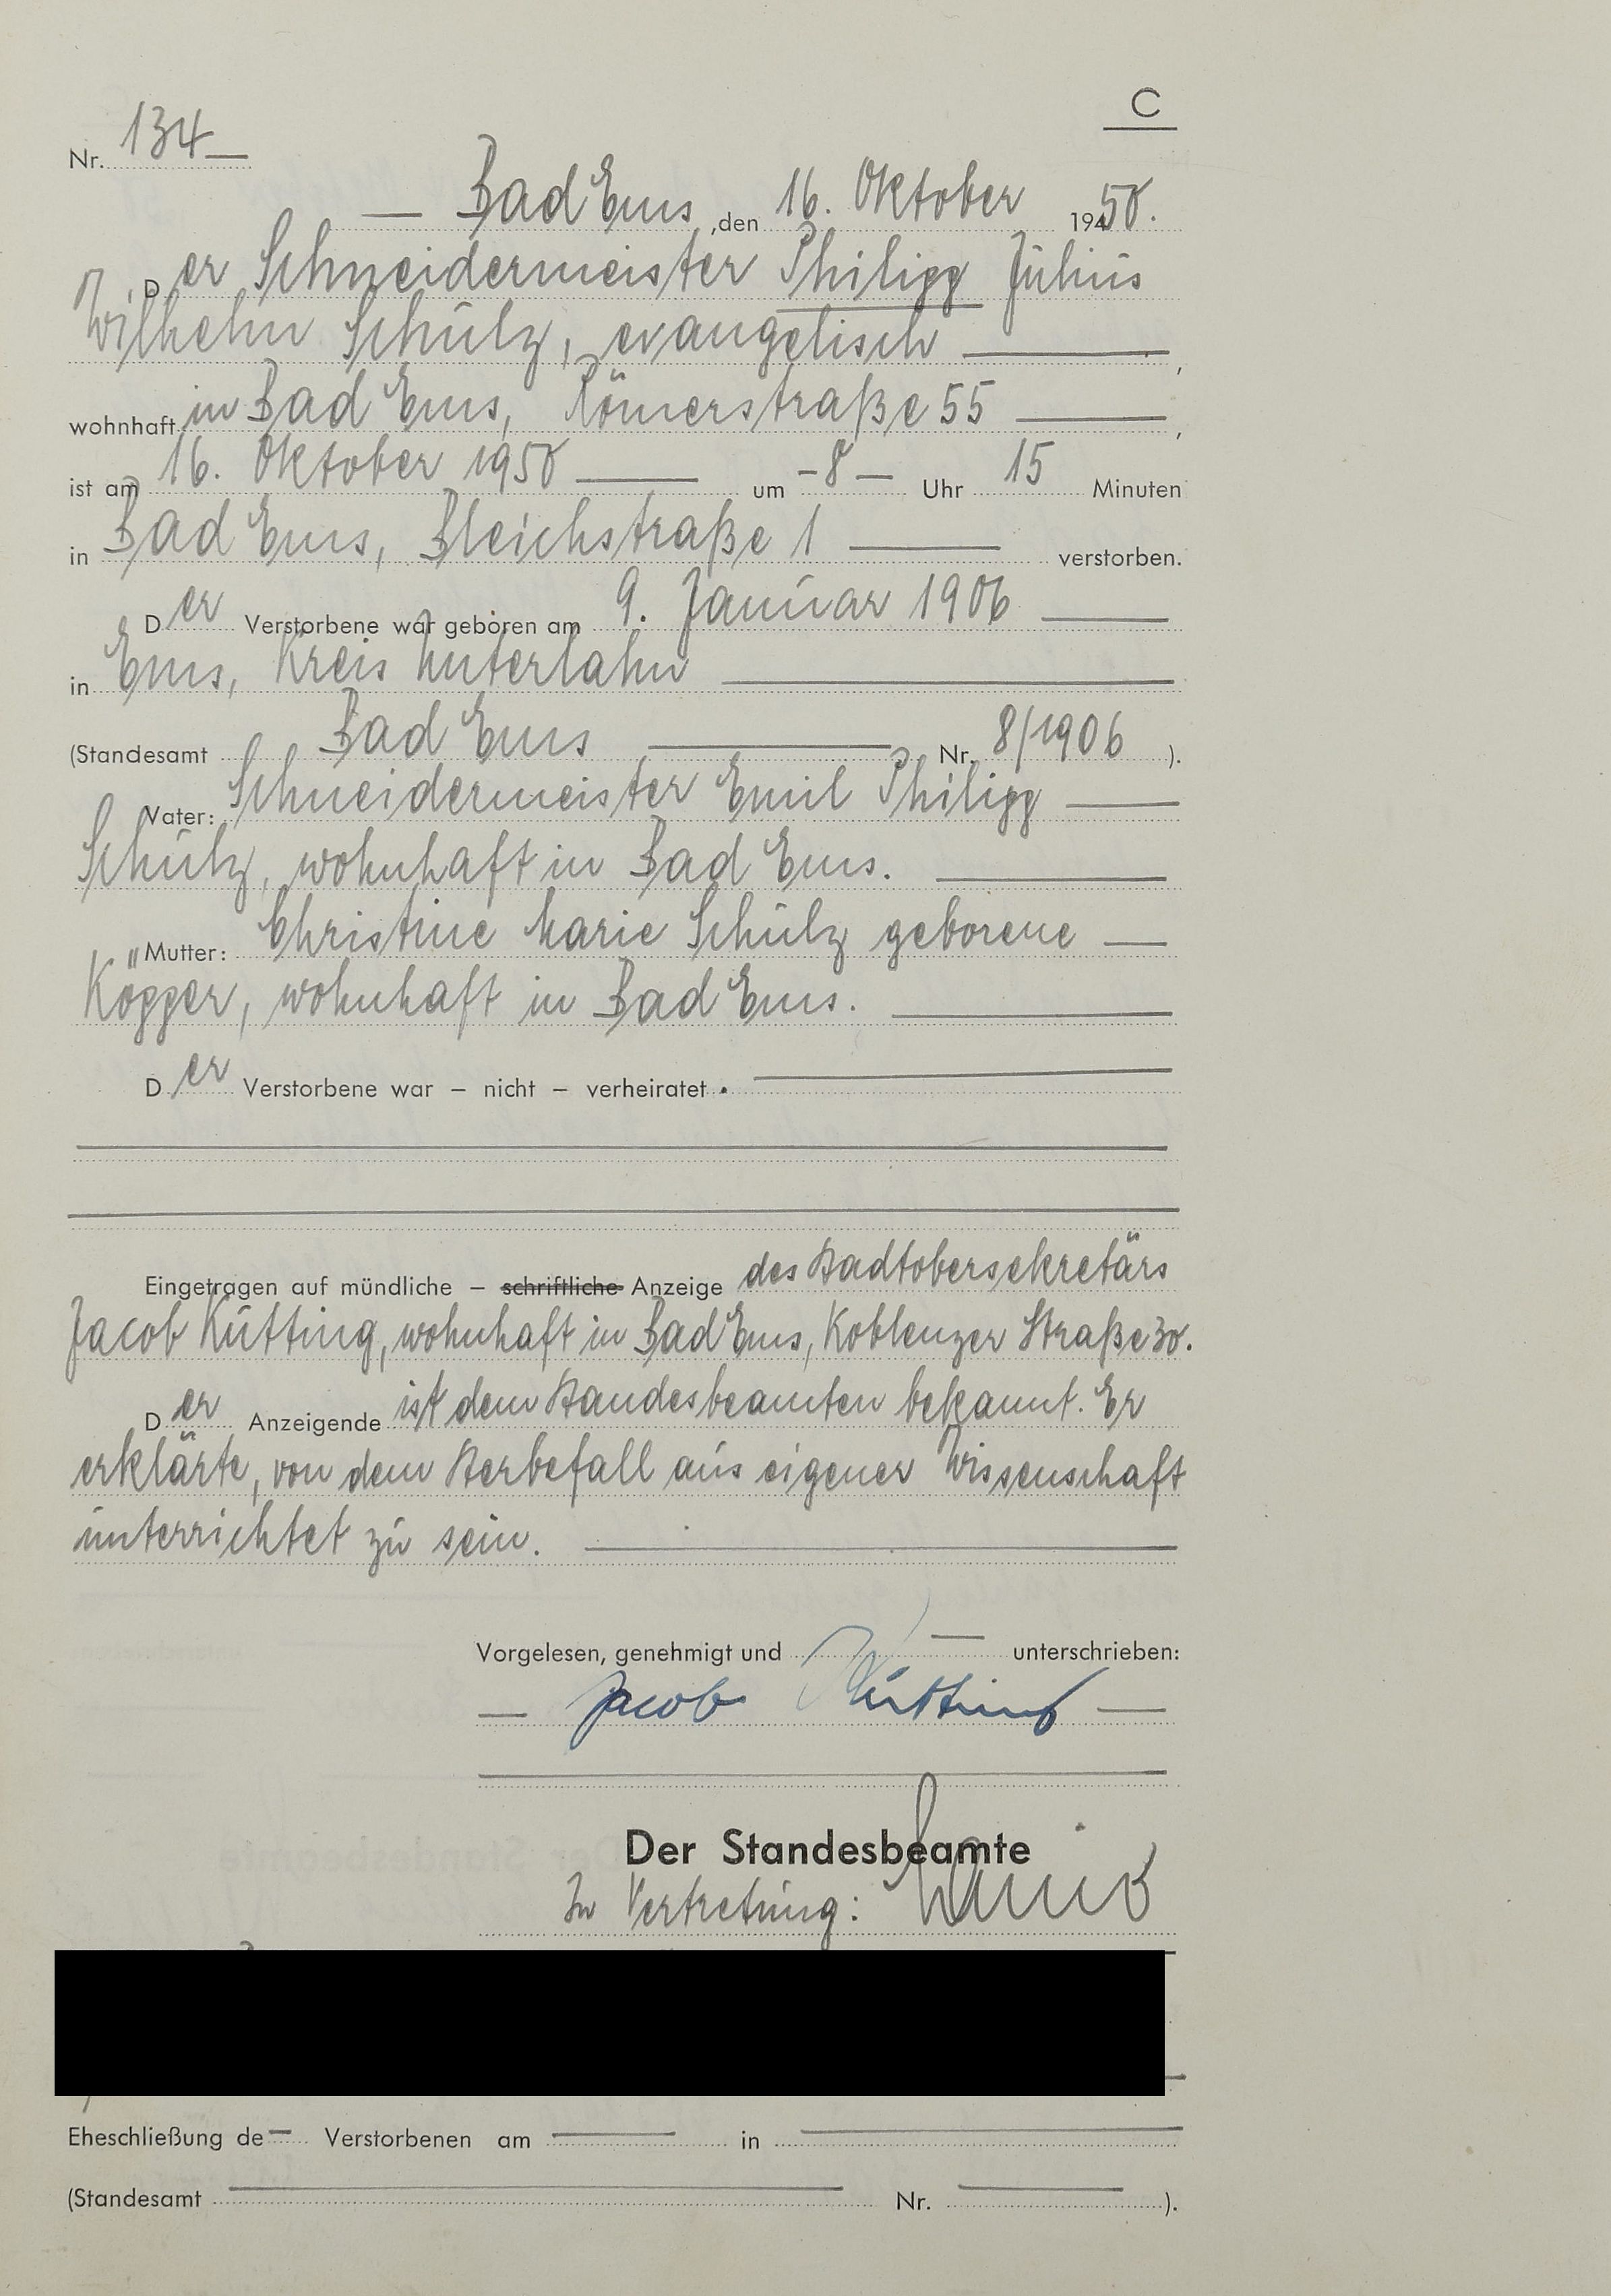 C
Nr. 134
Bad Ems, den 16. Oktober 1950.
Der Schneidermeister Philipp Julius
Wilhelm Schulz, evangelisch,
wohnhaft in Bad Ems, Römerstraße 55,
ist am 16. Oktober 1950 um 8 Uhr 15 Minuten
in Bad Ems, Bleichstraße 1 verstorben.
Der Verstorbene war geboren am 9. Januar 1906
in Ems, Kreis Unterlahn
(Standesamt Bad Ems Nr. 8/1906 ).
Vater: Schneidermeister Emil Philipp
Schulz, wohnhaft in Bad Ems.
Mutter: Christine Marie Schulz geborene
Köpper, wohnhaft in Bad Ems.
Der Verstorbene war – nicht – verheiratet.
Eingetragen auf mündliche – schriftliche Anzeige des Stadtobersekretärs
Jacob Kütting, wohnhaft in Bad Ems, Koblenzer Straße 30.
Der Anzeigende ist dem Standesbeamten bekannt. Er
erklärte, von dem Sterbefall aus eigener Wissenschaft
unterrichtet zu sein.
Vorgelesen, genehmigt und unterschrieben:
Jacob Kütting
Der Standesbeamte
In Vertretung:
Eheschließung de Verstorbenen am in
(Standesamt Nr. ).